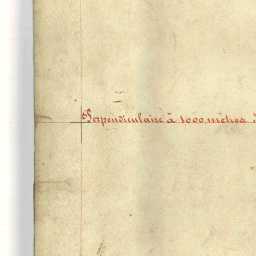 Perpendiculaire à 1000 mètres